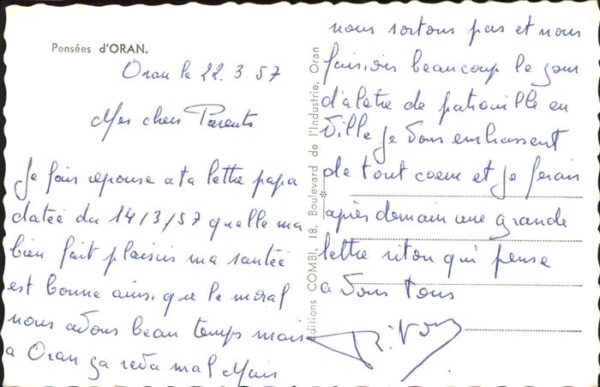 Pensées d'ORAN.
Oran le 22. 3 57
Mes chers Parents
Je fais reponse a ta lettre papa
datée du 14/3/57 quelle ma
bien fait plaisir ma santée
est bonne ainsi que le moral
nous avons beau temps mais
a Oran ça reva mal Mais
nous sortons pas et nous
faisions beaucoup le jour
d'aletre de patrouille en
Ville je vous embrassent
de tout coeur et je ferais
après demain une grande
lettre riton qui pense
a vous tous
Riton
Editions COMBI, 18, Boulevard de l'Industrie, Oran